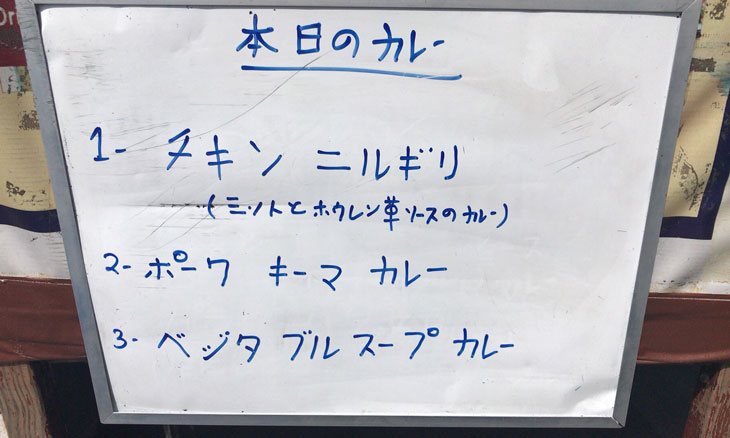 本日のカレー
1- チキン ニルギリ
(ミントとホウレン草ソースのカレー)
2- ポーク キーマ カレー
3- ベジタブルスープカレー